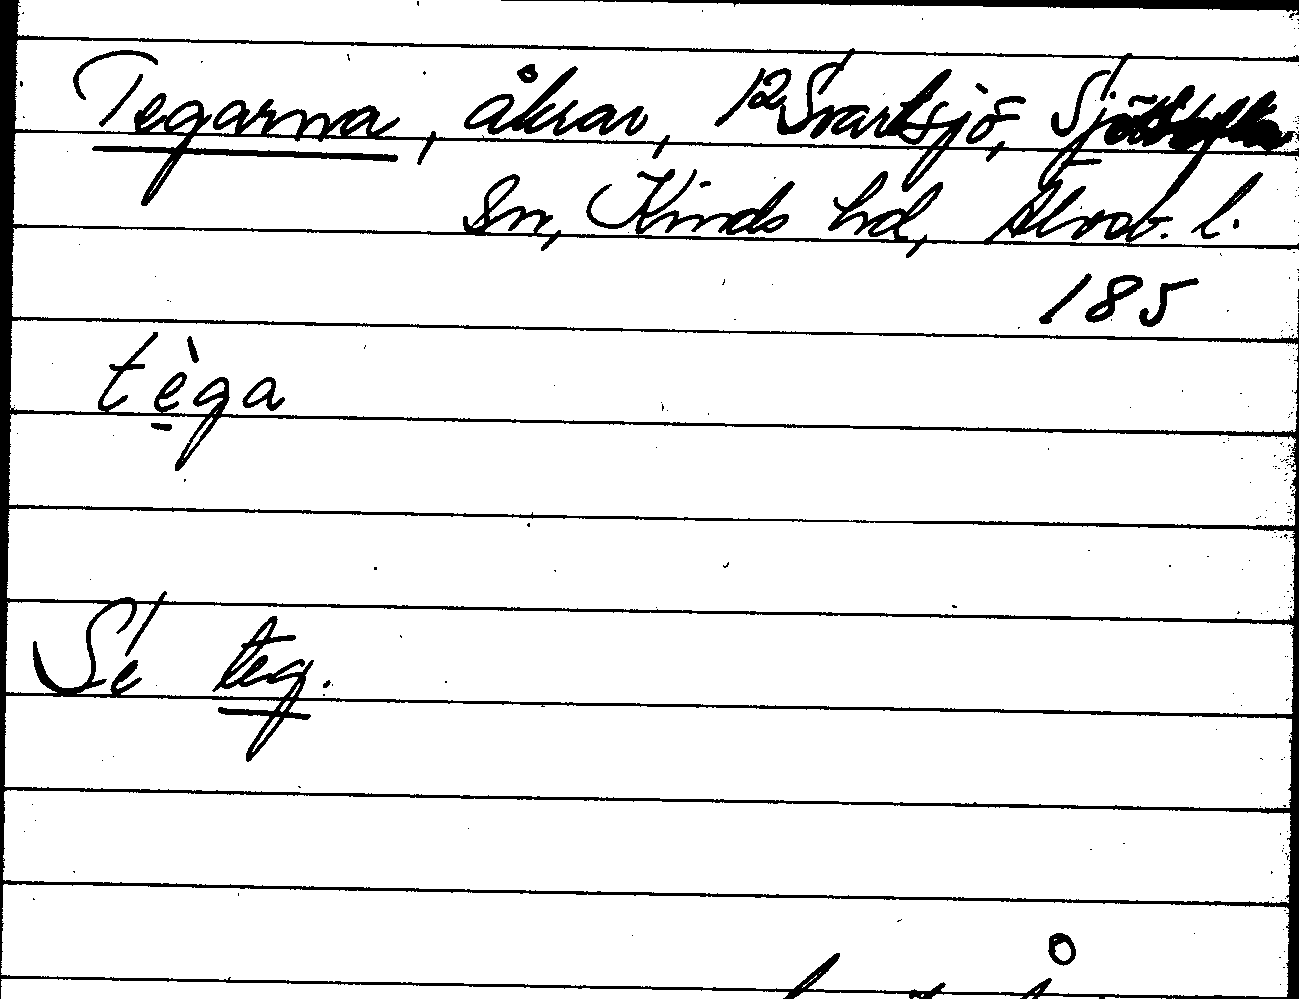 Tegarna, åkrar, 12 Svartsjö,
Sn, Kinds hd, Älvsb. l.
185
tèga
Se teg.